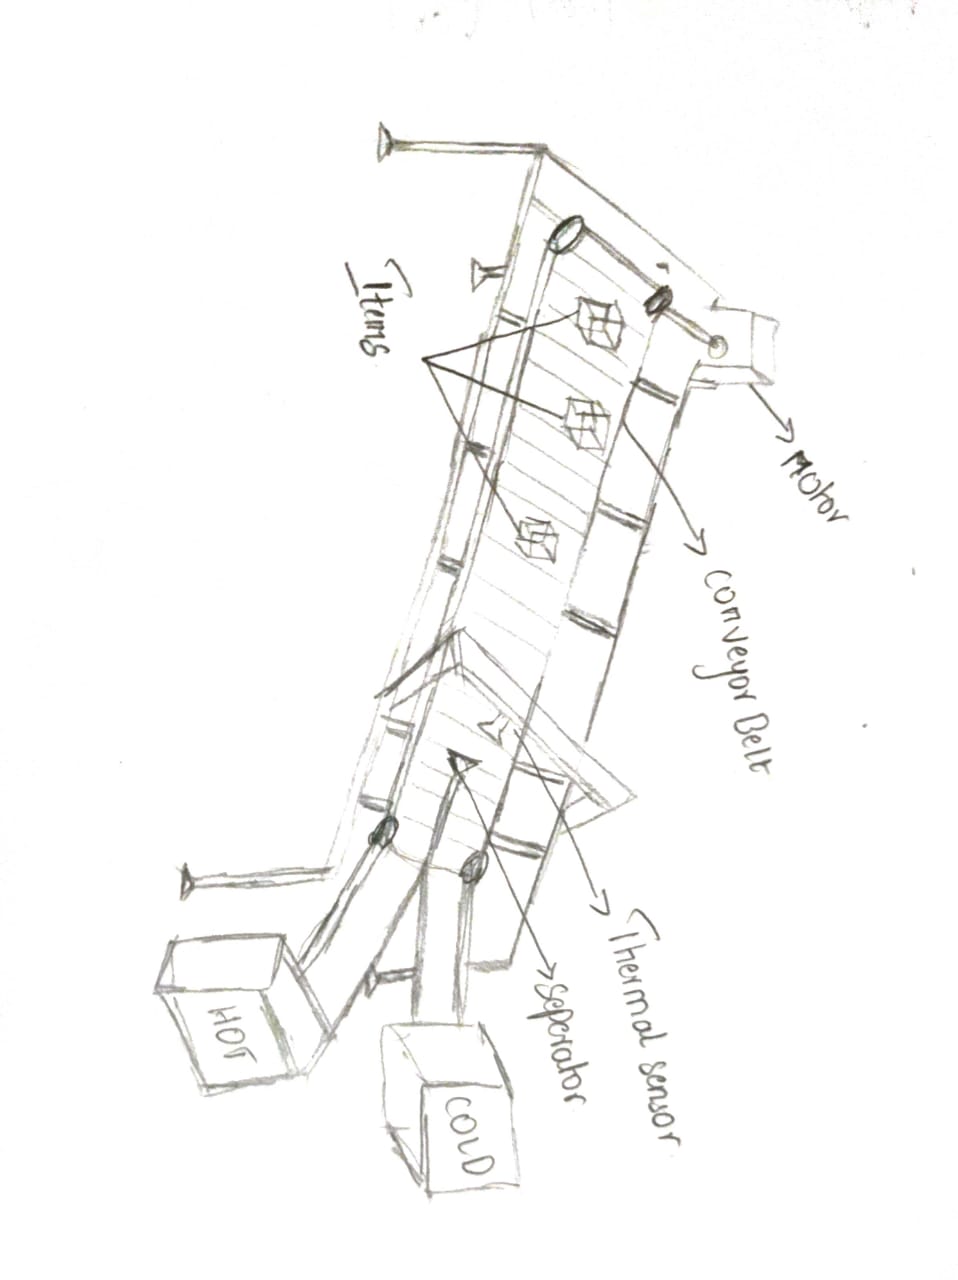 Motor
conveyor Belt
Thermal sensor
seperator
COLD
Items
HOT